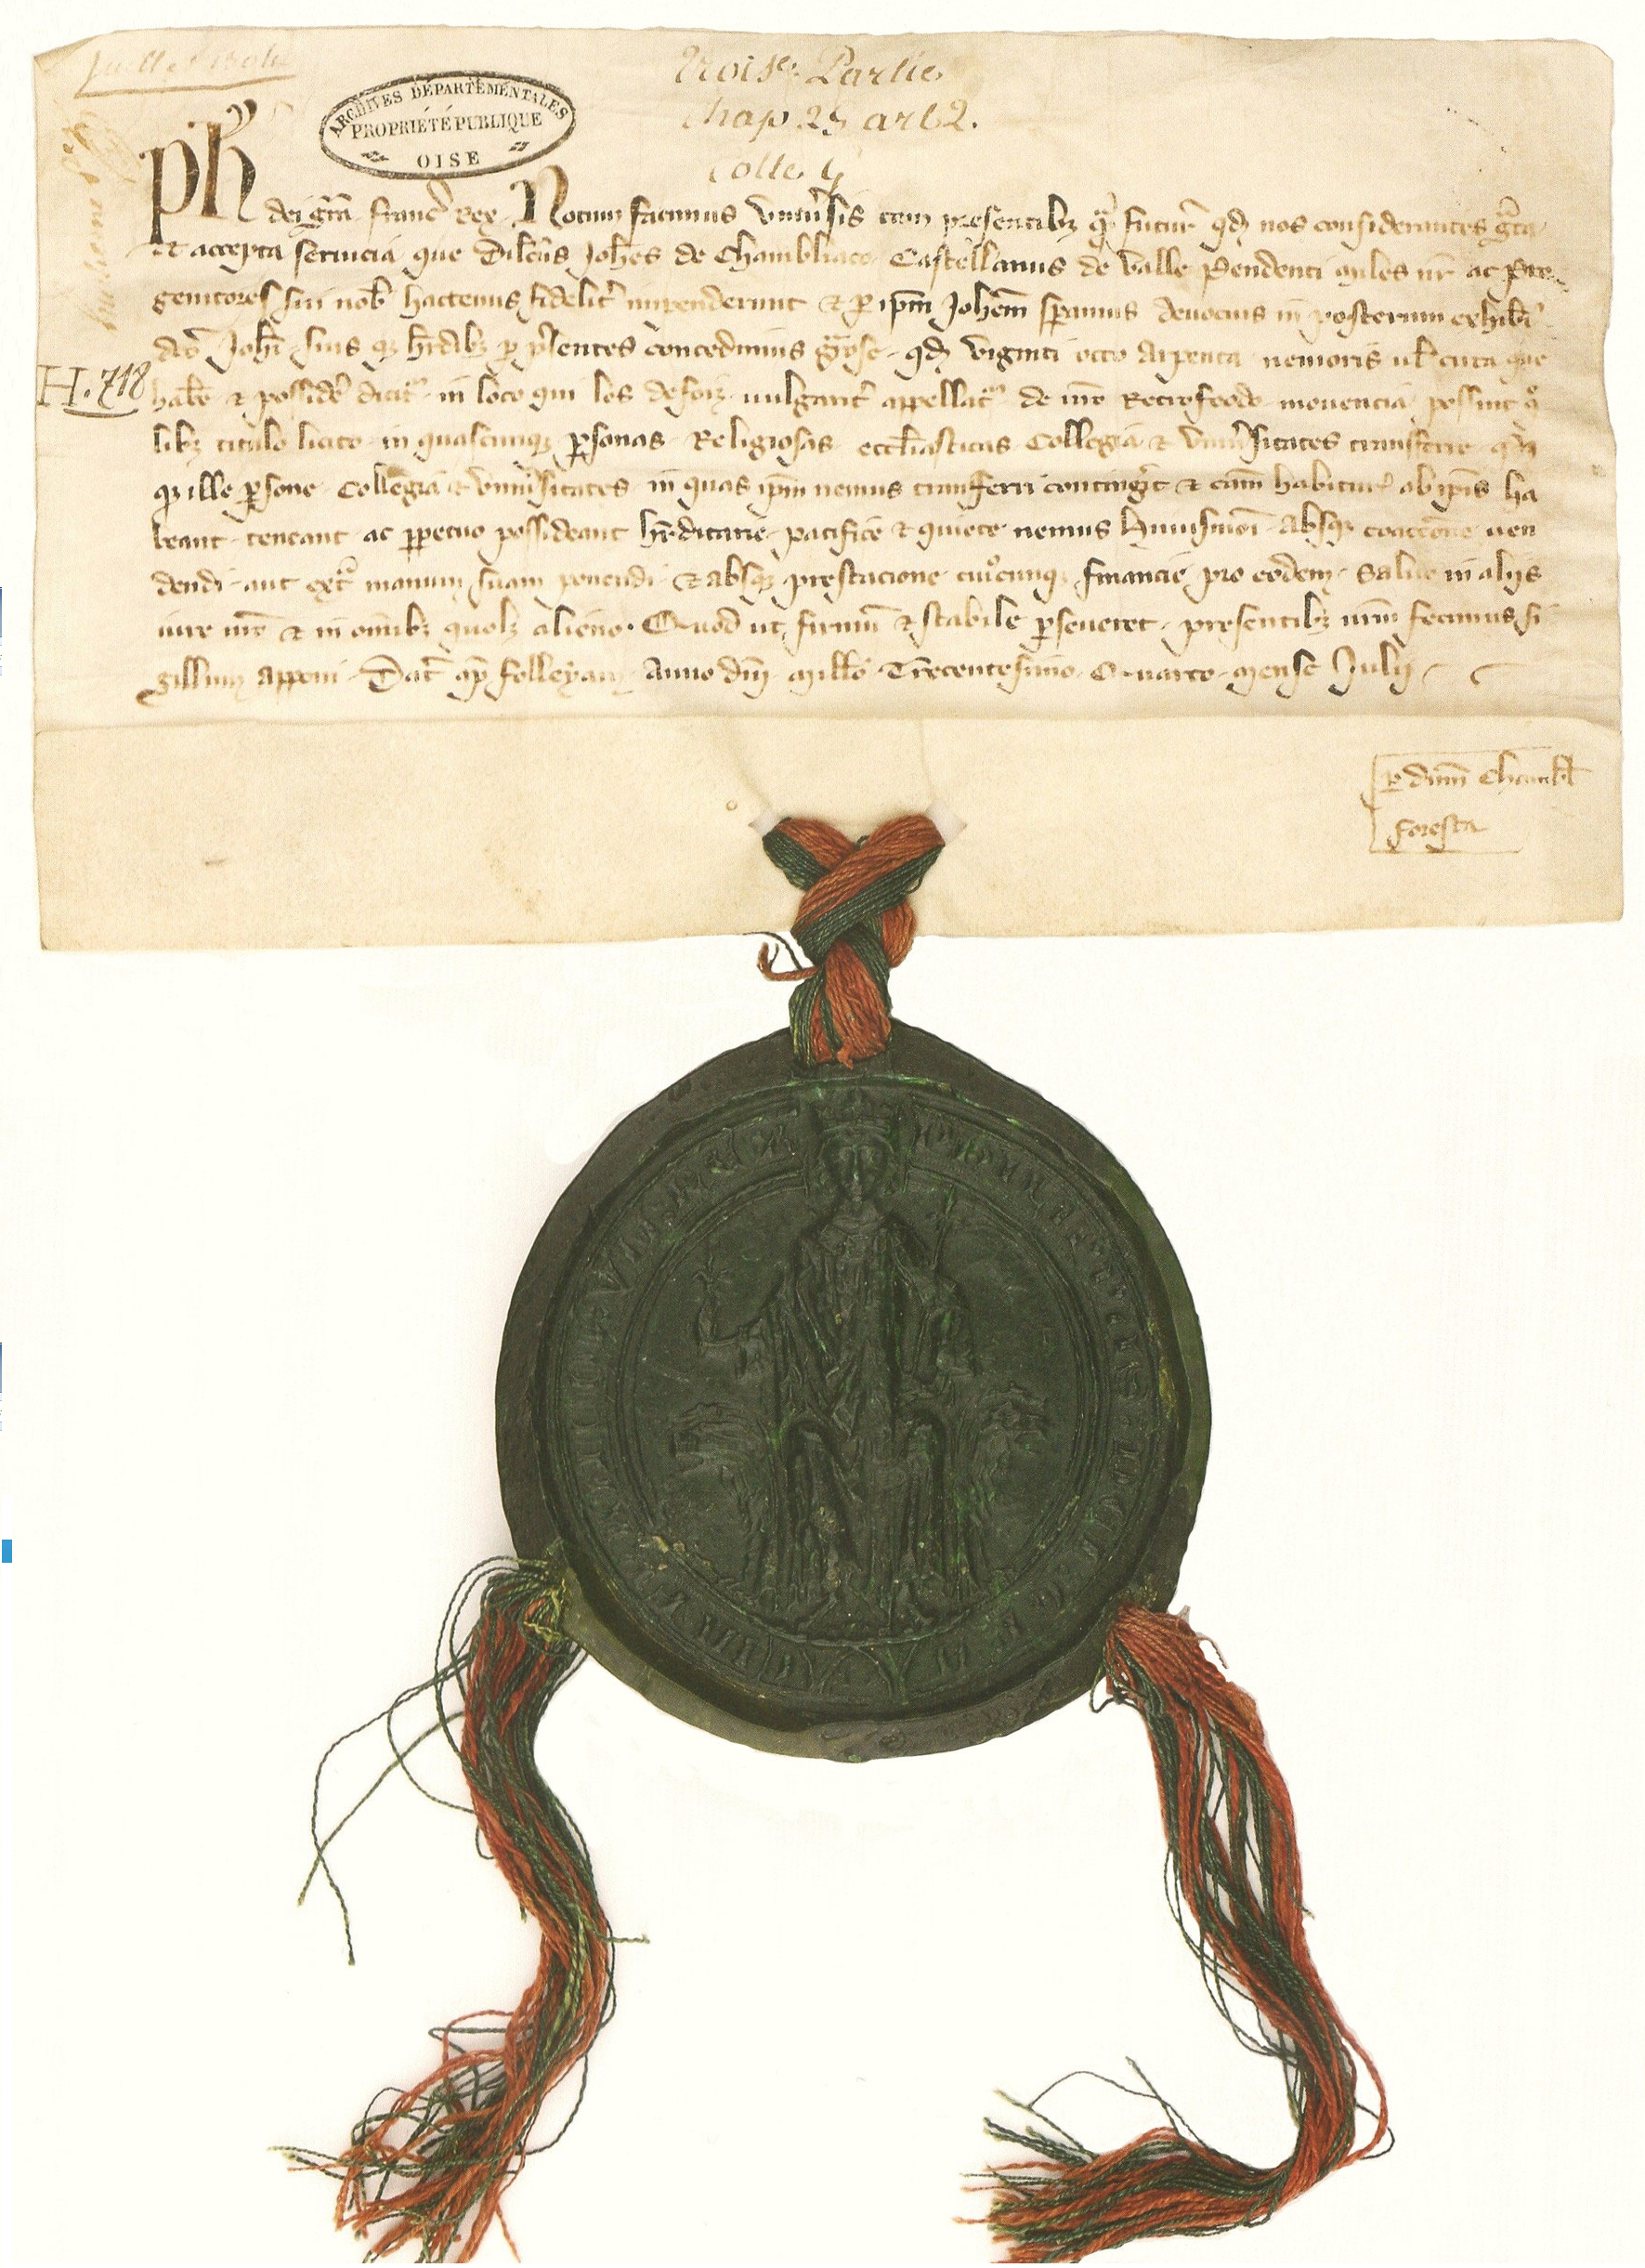 Juillet 1304
Troise. Partie
chap 25 art 2.
Cotte G
ARCHIVES DÉPARTEMENTALES
PROPRIÉTÉ PUBLIQUE
OISE
H. 718
Ph̃ dei gr̃a franc̃ Rex. Notum facimus vniu̾sis tam presentibꝫ qᷓ futur̃ qđ nos considerantes gᷓta
et accepta seruicia que dilcũs Joħes de Chambliaco Castellanus de valle Pendenti miles nr̃ ac Pro-
genitores sui noƀ hactenus fidelit̾ impenderunt et ꝑ ip̃m Joħem speramus deuocius in posterum exhiƀi
dc̃o Joħi suis qꝫ h̾edibꝫ ꝑ p̃sentes concedimus gᷓose qđ viginti octo arpenta nemoris uel circa que
habe̾ et posside̾ dicitᷣ in loco qui les defoiz uulgarit̾ appellatᷣ de nr̃o Retrofeodo mouencia possint qᷤ
libꝫ titulo licito in quascunqꝫ ꝑsonas Religiosas eccl̃iasticas Collegia et vniu̾sitates transferre
qꝫ ille ꝑsone Collegia et vniu̾sitates in quas ip̃m nemus transferri contingerit et cãm habitur̃ ab ip̃is ha
beant teneant ac ꝑpetuo possideant h̾editarie pacifice et quiete nemus huiusmoi absqꝫ coactione uen
dendi aut extᷓ manum suam ponendi et absqꝫ prestacione cuiᷤcunqꝫ financie pro eodem Saluo in alijs
iure nr̃o et in om̃ibꝫ quolꝫ alieno. Quod ut firmũ et stabile ꝑseueret presentibꝫ nr̃m fecimus si
gillum apponi. Dat̃ ap̃ folleyam Anno dñi millõ Trecentesimo Quarto mense Julij
ꝑ dñm Chambl̃
foresta